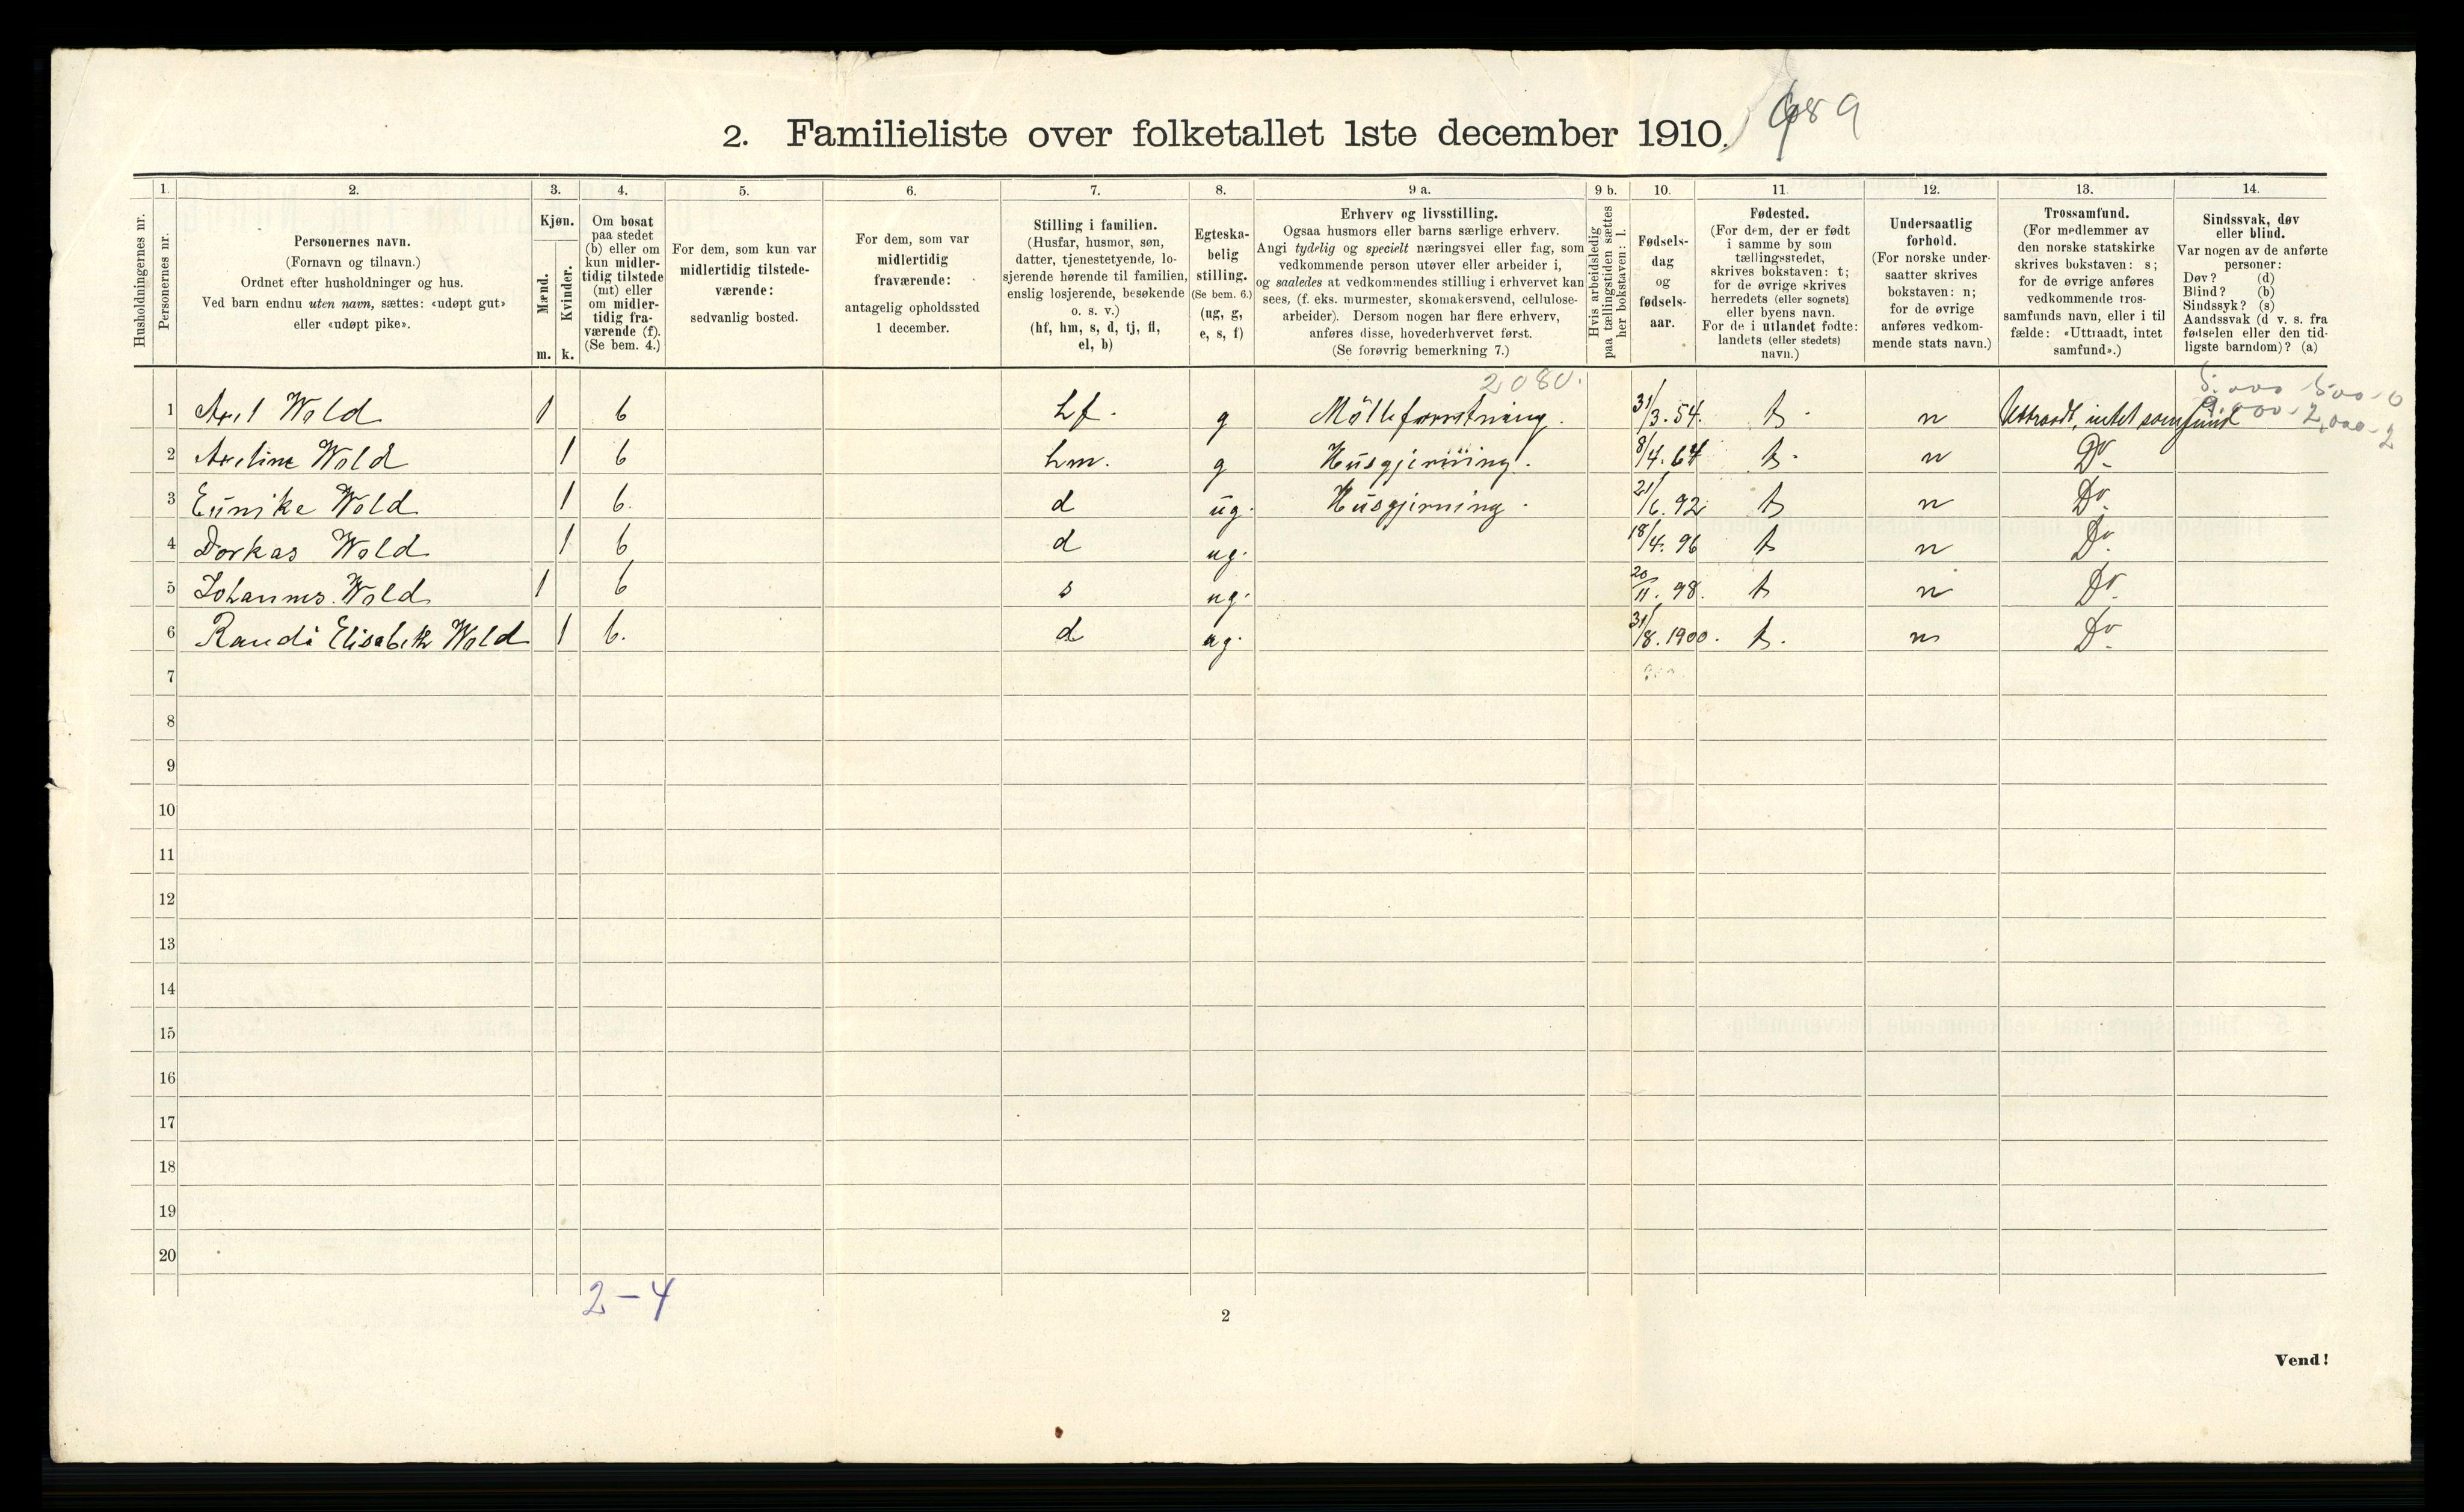 2. Familieliste over folketallet 1ste december 1910.
1. 2. 3. 4. 5. 6. 7. 8. 9 a. 9 b. 10. 11. 12. 13. 14.
Husholdningernes nr.
Personernes nr.
Personernes navn.
(Fornavn og tilnavn.)
Ordnet efter husholdninger og hus.
Ved barn endnu uten navn, sættes: «udøpt gut»
eller «udøpt pike».
Kjøn.
Mænd.
Kvinder.
m. k.
Om bosat
paa stedet
(b) eller om
kun midler-
tidig tilstede
(mt) eller
om midler-
tidig fra-
værende (f).
(Se bem. 4.)
For dem, som kun var
midlertidig tilstede-
værende:
sedvanlig bosted.
For dem, som var
midlertidig
fraværende:
antagelig opholdssted
1 december.
Stilling i familien.
(Husfar, husmor, søn,
datter, tjenestetyende, lo-
sjerende hørende til familien,
enslig losjerende, besøkende
o. s. v.)
(hf, hm, s, d, tj, fl,
el, b)
Egteska-
belig
stilling.
(Se bem. 6.)
(ug, g,
e, s, f)
Erhverv og livsstilling.
Ogsaa husmors eller barns særlige erhverv.
Angi tydelig og specielt næringsvei eller fag, som
vedkommende person utøver eller arbeider i,
og saaledes at vedkommendes stilling i erhvervet kan
sees, (f. eks. murmester, skomakersvend, cellulose-
arbeider). Dersom nogen har flere erhverv,
anføres disse, hovederhvervet først.
(Se forøvrig bemerkning 7.)
Hvis arbeidsledig
paa tællingstiden sættes
her bokstaven: l.
Fødsels-
dag
og
fødsels-
aar.
Fødested.
(For dem, der er født
i samme by som
tællingsstedet,
skrives bokstaven: t;
for de øvrige skrives
herredets (eller sognets)
eller byens navn.
For de i utlandet fødte:
landets (eller stedets)
navn.)
Undersaatlig
forhold.
(For norske under-
saatter skrives
bokstaven: n;
for de øvrige
anføres vedkom-
mende stats navn.)
Trossamfund.
(For medlemmer av
den norske statskirke
skrives bokstaven: s;
for de øvrige anføres
vedkommende tros-
samfunds navn, eller i til
fælde: «Uttraadt, intet
samfund».)
Sindssvak, døv
eller blind.
Var nogen av de anførte
personer:
Døv? (d)
Blind? (b)
Sindssyk? (s)
Aandssvak (d v. s. fra
fødselen eller den tid-
ligste barndom)? (a)
2080.
1 Axel Wold 1 b hf. g Mölleforretning. 31/3. 54. t. n Uttraadt, intet samfund
2 Axeline Wold 1 b hm. g Husgjerning. 8/4. 64 t. n Do
3 Eunike Wold 1 b. d ug. Husgjerning. 21/6. 92 t n Do
4 Dorkas Wold 1 b d ug. 18/4. 96 t n Do
5 Johannes Wold 1 b s ug. 20/11. 98. t n Do
6 Randi Elisabeth Wold 1 b. d ug. 31/8. 1900. t. n Do
7
8
9
10
11
12
13
14
15
16
17
18
19
20
2-4
2
Vend!